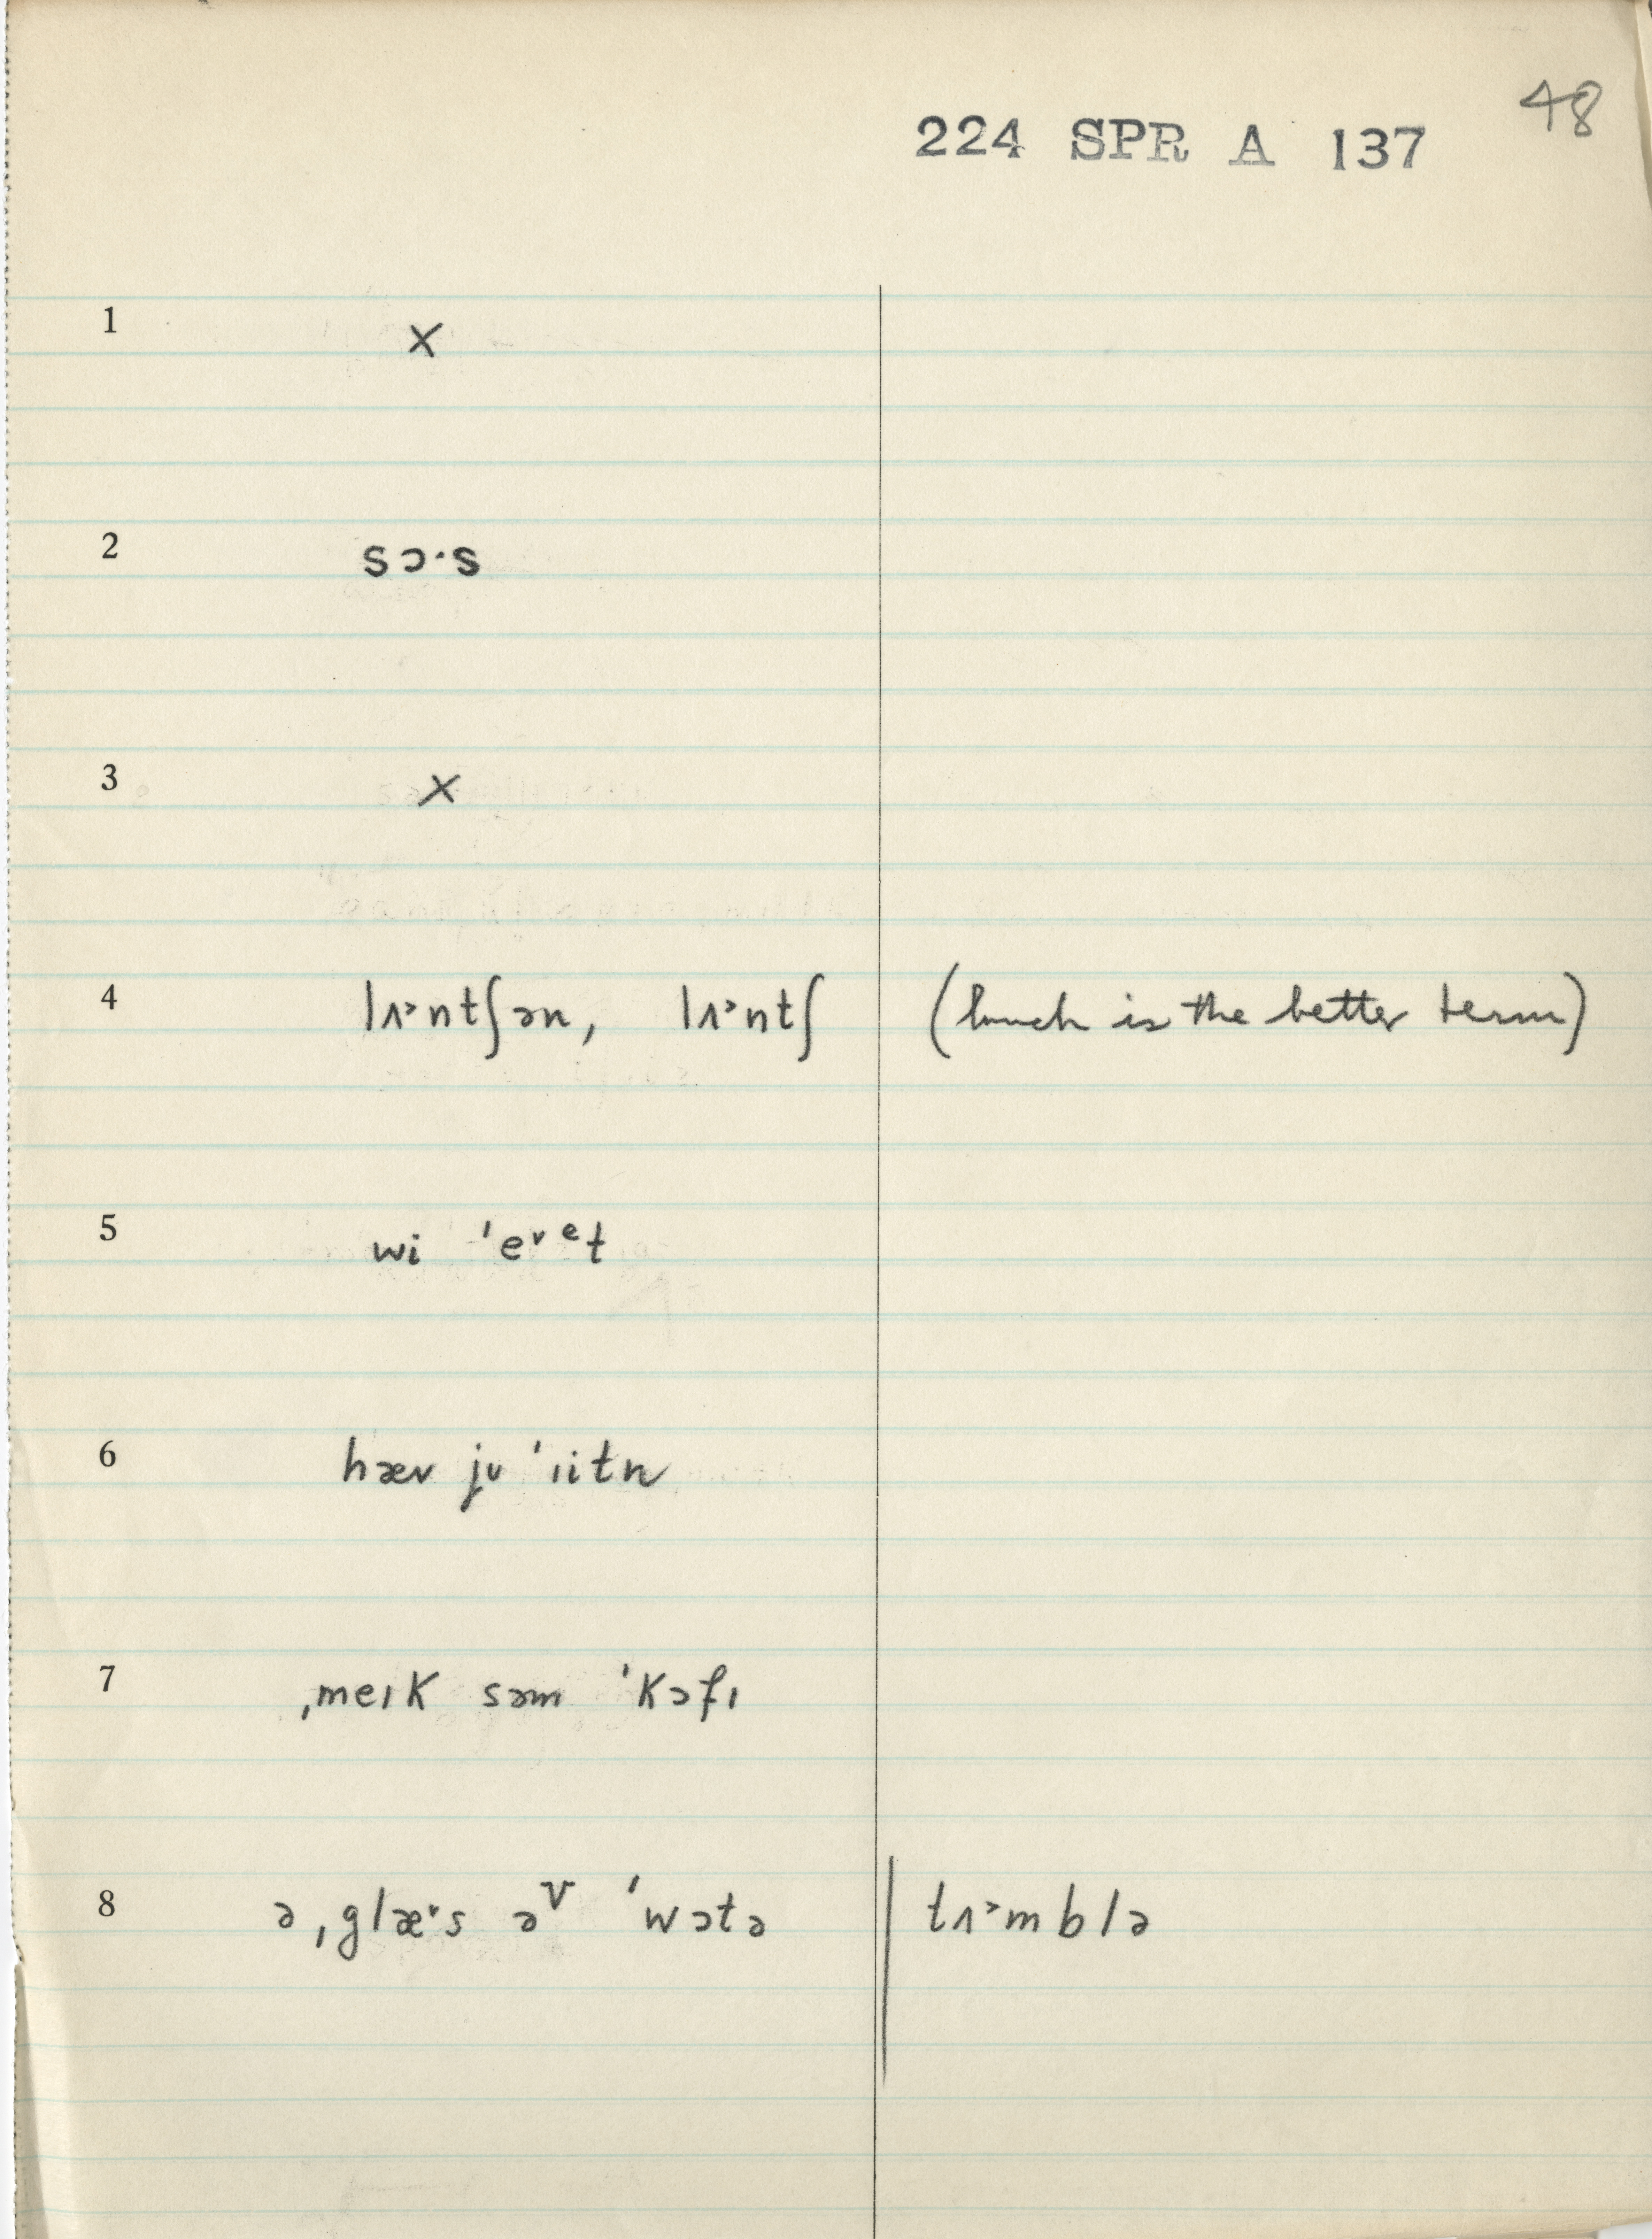 48
224 SPR A 137
1 ×
2 sɔ·s
3 ×
4 lʌ˃ntʃən, lʌ˃ntʃ (lunch is the better term)
5 wi ˈe˅ᵉt
6 hæv jʊ ˈɪitn
7 ˌmeɪk səm ˈkɔfɪ
8 ə ˌglæ˅·s əᵛ ˈwɔtə | tʌ˃mblə